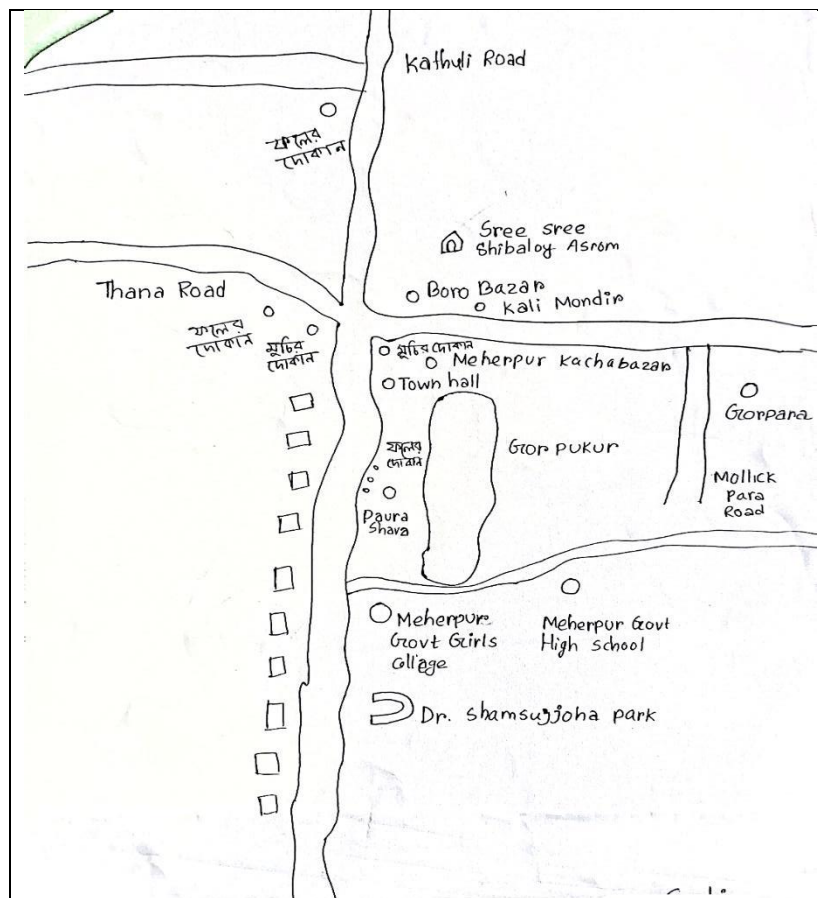 Kathuli Road
ফলের
দোকান
Sree sree
Shibaloy Asrom
Thana Road
Boro Bazar
Kali Mondir
ফলের
দোকান
মুচির
দোকান
মুচির দোকান
Meherpur Kachabazar
Town hall
Gorpara
ফলের
দোকান
Gor pukur
Mollick
Para
Road
Paura
Shava
Meherpur
Govt Girls
Collage
Meherpur Govt
High school
Dr. Shamsujjoha park